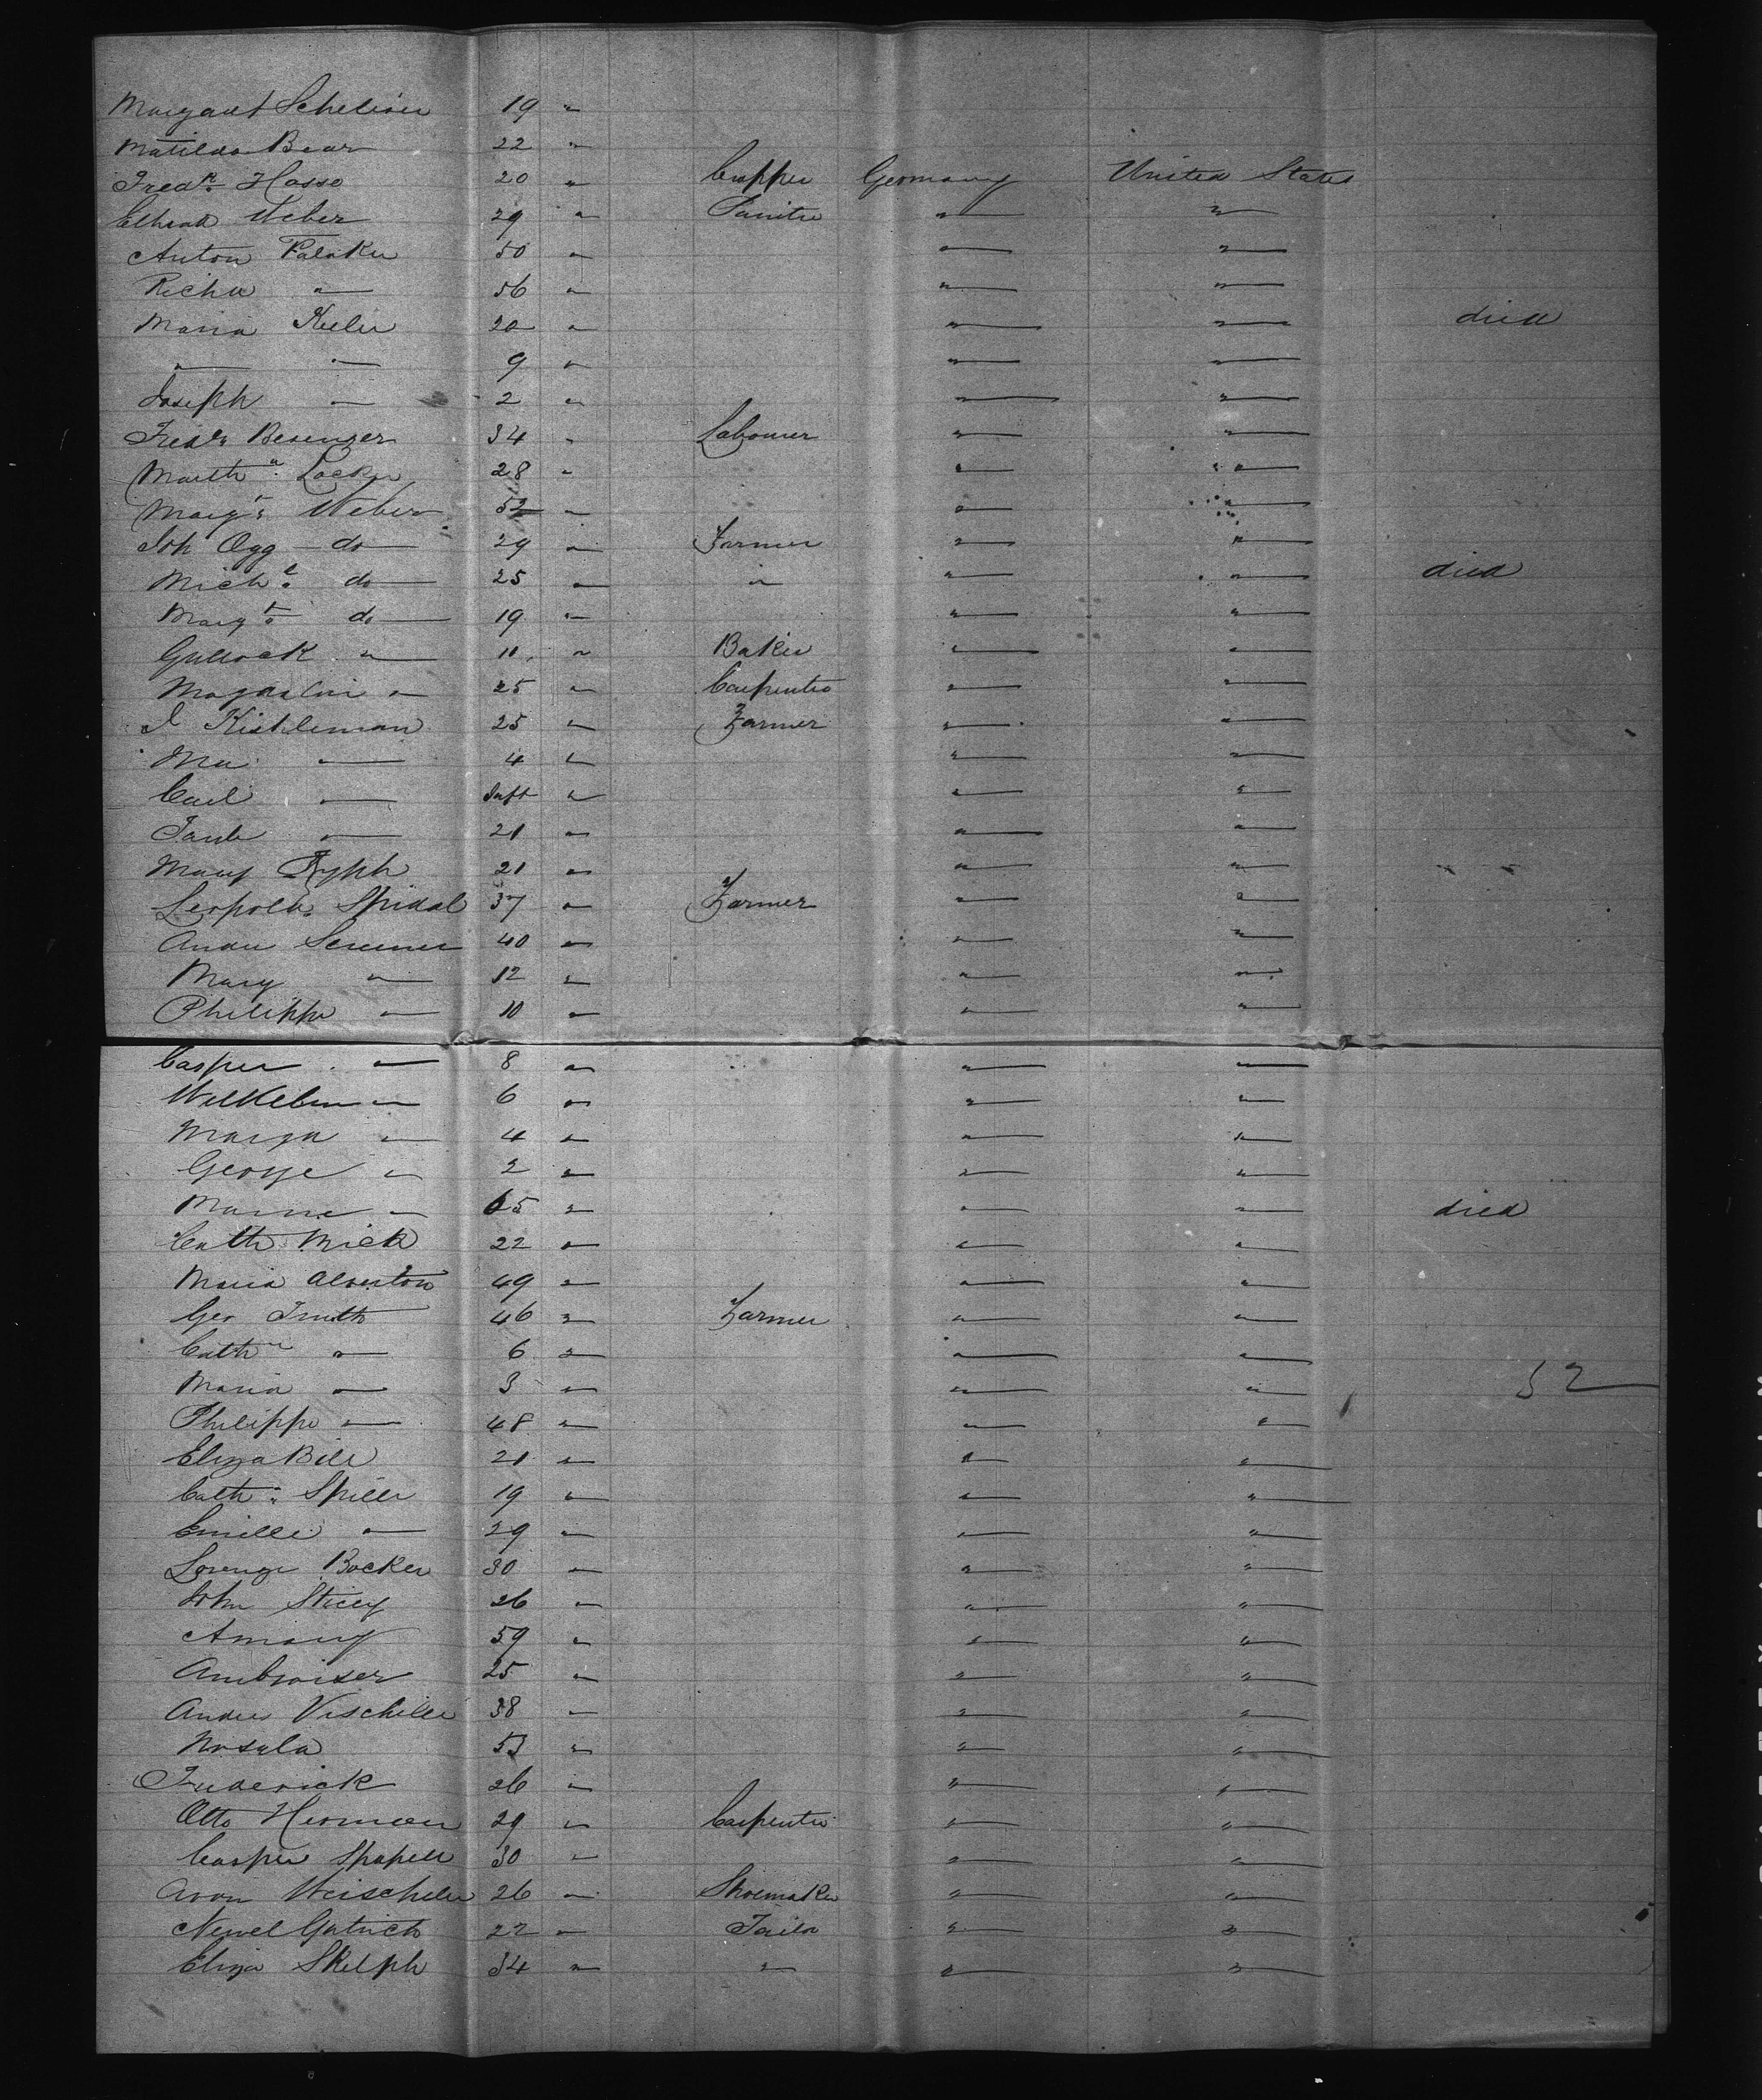 Margaret Schelivier 19 "
Matilda Bear 22 "
Fredk Hasse 20 " Cupper Germany United States
Weber 29 " " "
Anton Falaker 50 " " "
Richa " 56 " " "
Maria Keeler 20 " " " died
" " 9 " " "
Joseph " 2 " " "
Fredk Besenger 34 " Labourer " "
Martha Locker 28 " " "
Margt Weber 52 " " "
Joh Ogg do 29 " Farmer " "
Michl do 25 " " " " died
Margt do 19 " " "
" 11 " Baker " "
" 25 " Carpenter " "
J Kishleman 25 " Farmer " "
Ma " 4 " " "
Carl " Inft " " "
" 21 " " "
Mary 21 " " "
Leopold Spidal 37 " Farmer " "
Andre 40 " " "
Mary " 12 " " "
Philippe " 10 " " "
Casper " 8 " " "
" 6 " " "
Marga " 4 " " "
George " 2 " " "
" 65 " " " died
Cath Mick 22 " " "
Maria Alverton 49 " " "
Geo Smith 46 " Farmer " "
Cathn " 6 " " "
Maria " 3 " " " 52
Philippe " 48 " " "
Eliza Bill 21 " " "
Cath Spiller 19 " " "
Emille " 29 " " "
Lorenze Bocker 30 " " "
John Stiey 26 " " "
Amany 59 " " "
Ambroiser 25 " " "
Andre Vischelle 38 " " "
Nosala 53 " " "
Frederick 26 " " "
Otto Herman 29 " Carpenter " "
Casper Shapell 30 " " "
Aron Weischeler 26 " Shoemaker " "
Newel Gatrich 22 " Tailor " "
Eliza Skelph 34 " " " "